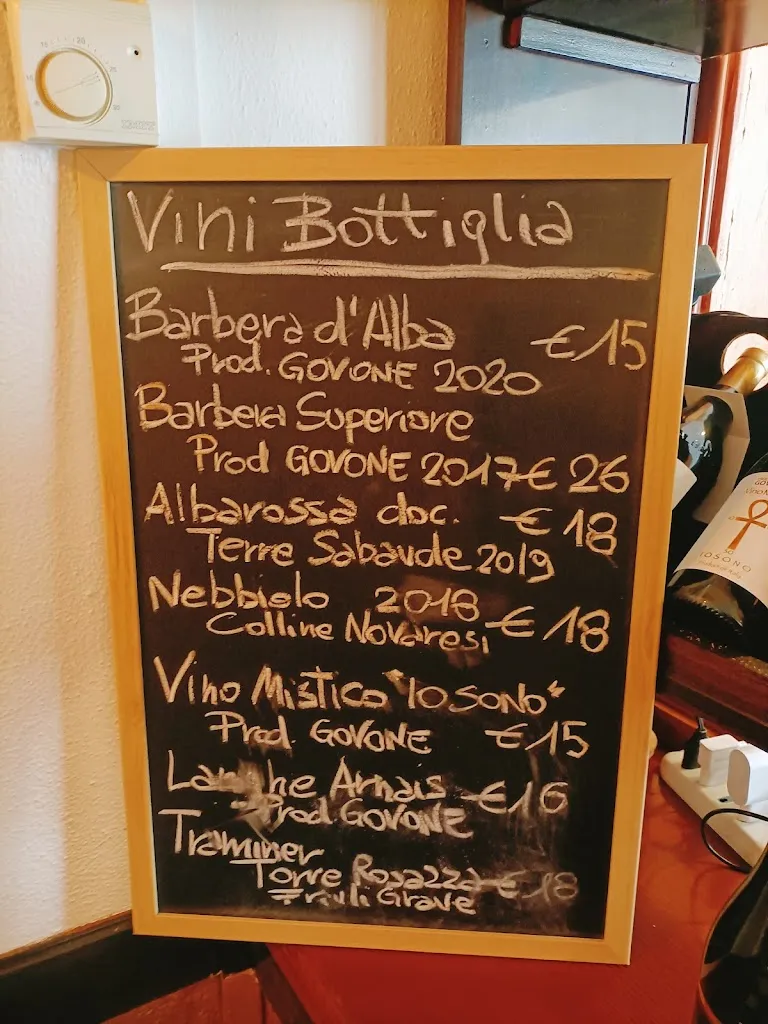 Vini Bottiglia
Barbera d'Alba €15
Prod. GOVONE 2020
Barbera Superiore
Prod GOVONE 2017 € 26
Albarossa doc. € 18
Terre Sabaude 2019
Nebbiolo 2018 € 18
Colline Novaresi
Vino Mistico "IO SONO"
Prod. GOVONE €15
Langhe Arnais €16
Prod GOVONE
Traminer
Torre Rosazza €18
Friuli Grave
IO SONO